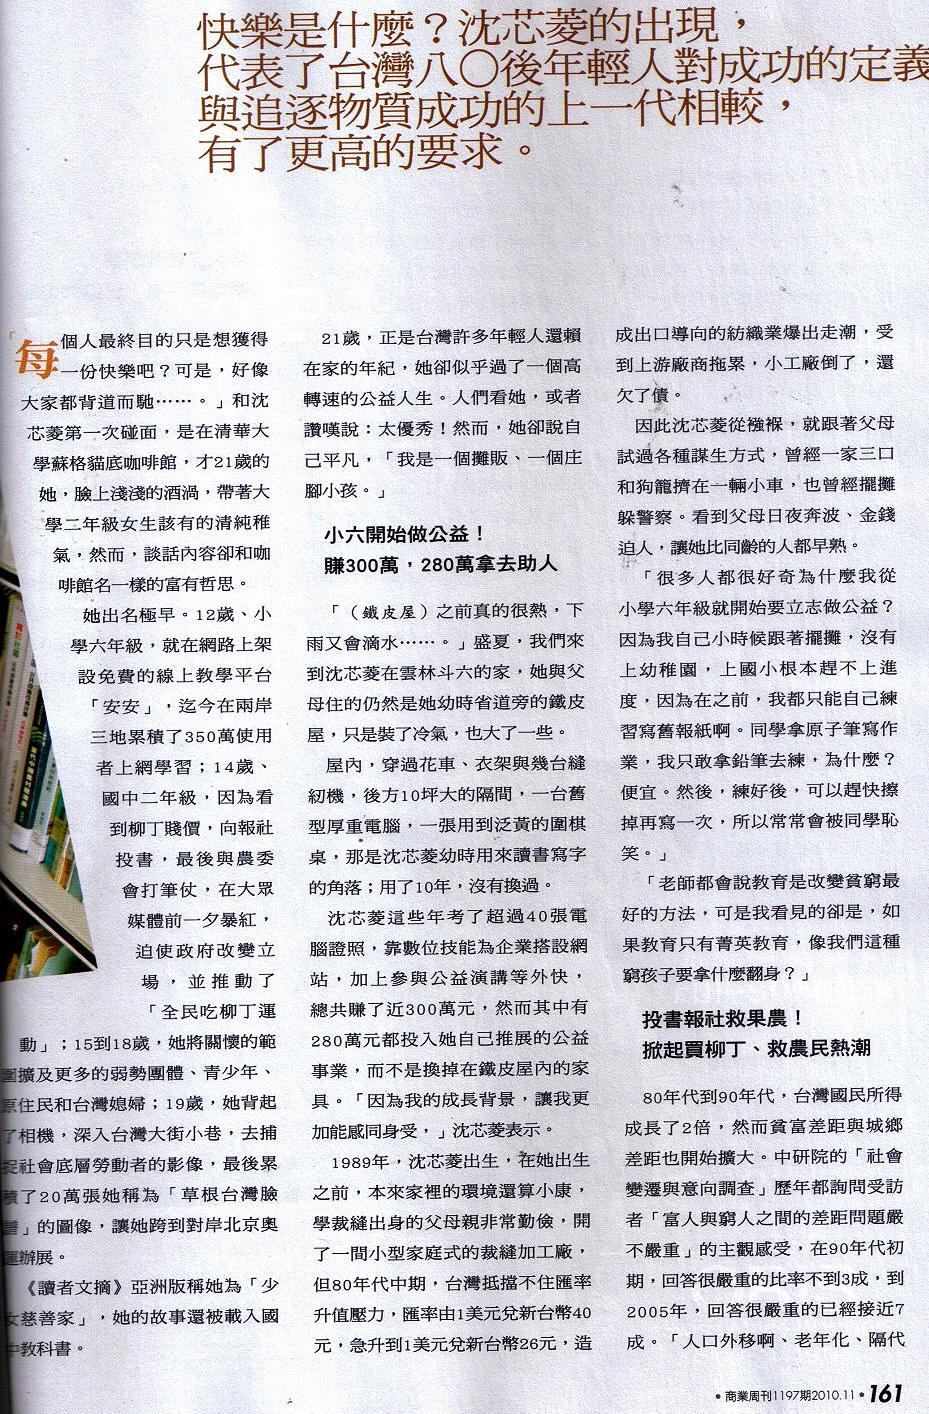 快樂是什麼？沈芯菱的出現，
代表了台灣八〇後年輕人對成功的定義
與追逐物質成功的上一代相較，
有了更高的要求。
「每個人最終目的只是想獲得
一份快樂吧？可是，好像
大家都背道而馳……。」和沈
芯菱第一次碰面，是在清華大
學蘇格貓底咖啡館，才21歲的
她，臉上淺淺的酒渦，帶著大
學二年級女生該有的清純稚
氣，然而，談話內容卻和咖
啡館名一樣的富有哲思。
她出名極早。12歲、小
學六年級，就在網路上架
設免費的線上教學平台
「安安」，迄今在兩岸
三地累積了350萬使用
者上網學習；14歲、
國中二年級，因為看
到柳丁賤價，向報社
投書，最後與農委
會打筆仗，在大眾
媒體前一夕暴紅，
迫使政府改變立
場，並推動了
「全民吃柳丁運
動」；15到18歲，她將關懷的範
圍擴及更多的弱勢團體、青少年、
原住民和台灣媳婦；19歲，她背起
了相機，深入台灣大街小巷，去捕
捉社會底層勞動者的影像，最後累
積了20萬張她稱為「草根台灣臉
譜」的圖像，讓她跨到對岸北京奧
運辦展。
《讀者文摘》亞洲版稱她為「少
女慈善家」，她的故事還被載入國
中教科書。
21歲，正是台灣許多年輕人還賴
在家的年紀，她卻似乎過了一個高
轉速的公益人生。人們看她，或者
讚嘆說：太優秀！然而，她卻說自
己平凡，「我是一個攤販、一個庄
腳小孩。」
小六開始做公益！
賺300萬，280萬拿去助人
「（鐵皮屋）之前真的很熱，下
雨又會滴水……。」盛夏，我們來
到沈芯菱在雲林斗六的家，她與父
母住的仍然是她幼時省道旁的鐵皮
屋，只是裝了冷氣，也大了一些。
屋內，穿過花車、衣架與幾台縫
紉機，後方10坪大的隔間，一台舊
型厚重電腦，一張用到泛黃的圍棋
桌，那是沈芯菱幼時用來讀書寫字
的角落；用了10年，沒有換過。
沈芯菱這些年考了超過40張電
腦證照，靠數位技能為企業搭設網
站，加上參與公益演講等外快，
總共賺了近300萬元，然而其中有
280萬元都投入她自己推展的公益
事業，而不是換掉在鐵皮屋內的家
具。「因為我的成長背景，讓我更
加能感同身受，」沈芯菱表示。
1989年，沈芯菱出生，在她出生
之前，本來家裡的環境還算小康，
學裁縫出身的父母親非常勤儉，開
了一間小型家庭式的裁縫加工廠，
但80年代中期，台灣抵擋不住匯率
升值壓力，匯率由1美元兌新台幣40
元，急升到1美元兌新台幣26元，造
成出口導向的紡織業爆出走潮，受
到上游廠商拖累，小工廠倒了，還
欠了債。
因此沈芯菱從襁褓，就跟著父母
試過各種謀生方式，曾經一家三口
和狗籠擠在一輛小車，也曾經擺攤
躲警察。看到父母日夜奔波、金錢
迫人，讓她比同齡的人都早熟。
「很多人都很好奇為什麼我從
小學六年級就開始要立志做公益？
因為我自己小時候跟著擺攤，沒有
上幼稚園，上國小根本趕不上進
度，因為在之前，我都只能自己練
習寫舊報紙啊。同學拿原子筆寫作
業，我只敢拿鉛筆去練，為什麼？
便宜。然後，練好後，可以趕快擦
掉再寫一次，所以常常會被同學恥
笑。」
「老師都會說教育是改變貧窮最
好的方法，可是我看見的卻是，如
果教育只有菁英教育，像我們這種
窮孩子要拿什麼翻身？」
投書報社救果農！
掀起買柳丁、救農民熱潮
80年代到90年代，台灣國民所得
成長了2倍，然而貧富差距與城鄉
差距也開始擴大。中研院的「社會
變遷與意向調查」歷年都詢問受訪
者「富人與窮人之間的差距問題嚴
不嚴重」的主觀感受，在90年代初
期，回答很嚴重的比率不到3成，到
2005年，回答很嚴重的已經接近7
成。「人口外移啊、老年化、隔代
•商業周刊1197期2010.11•161